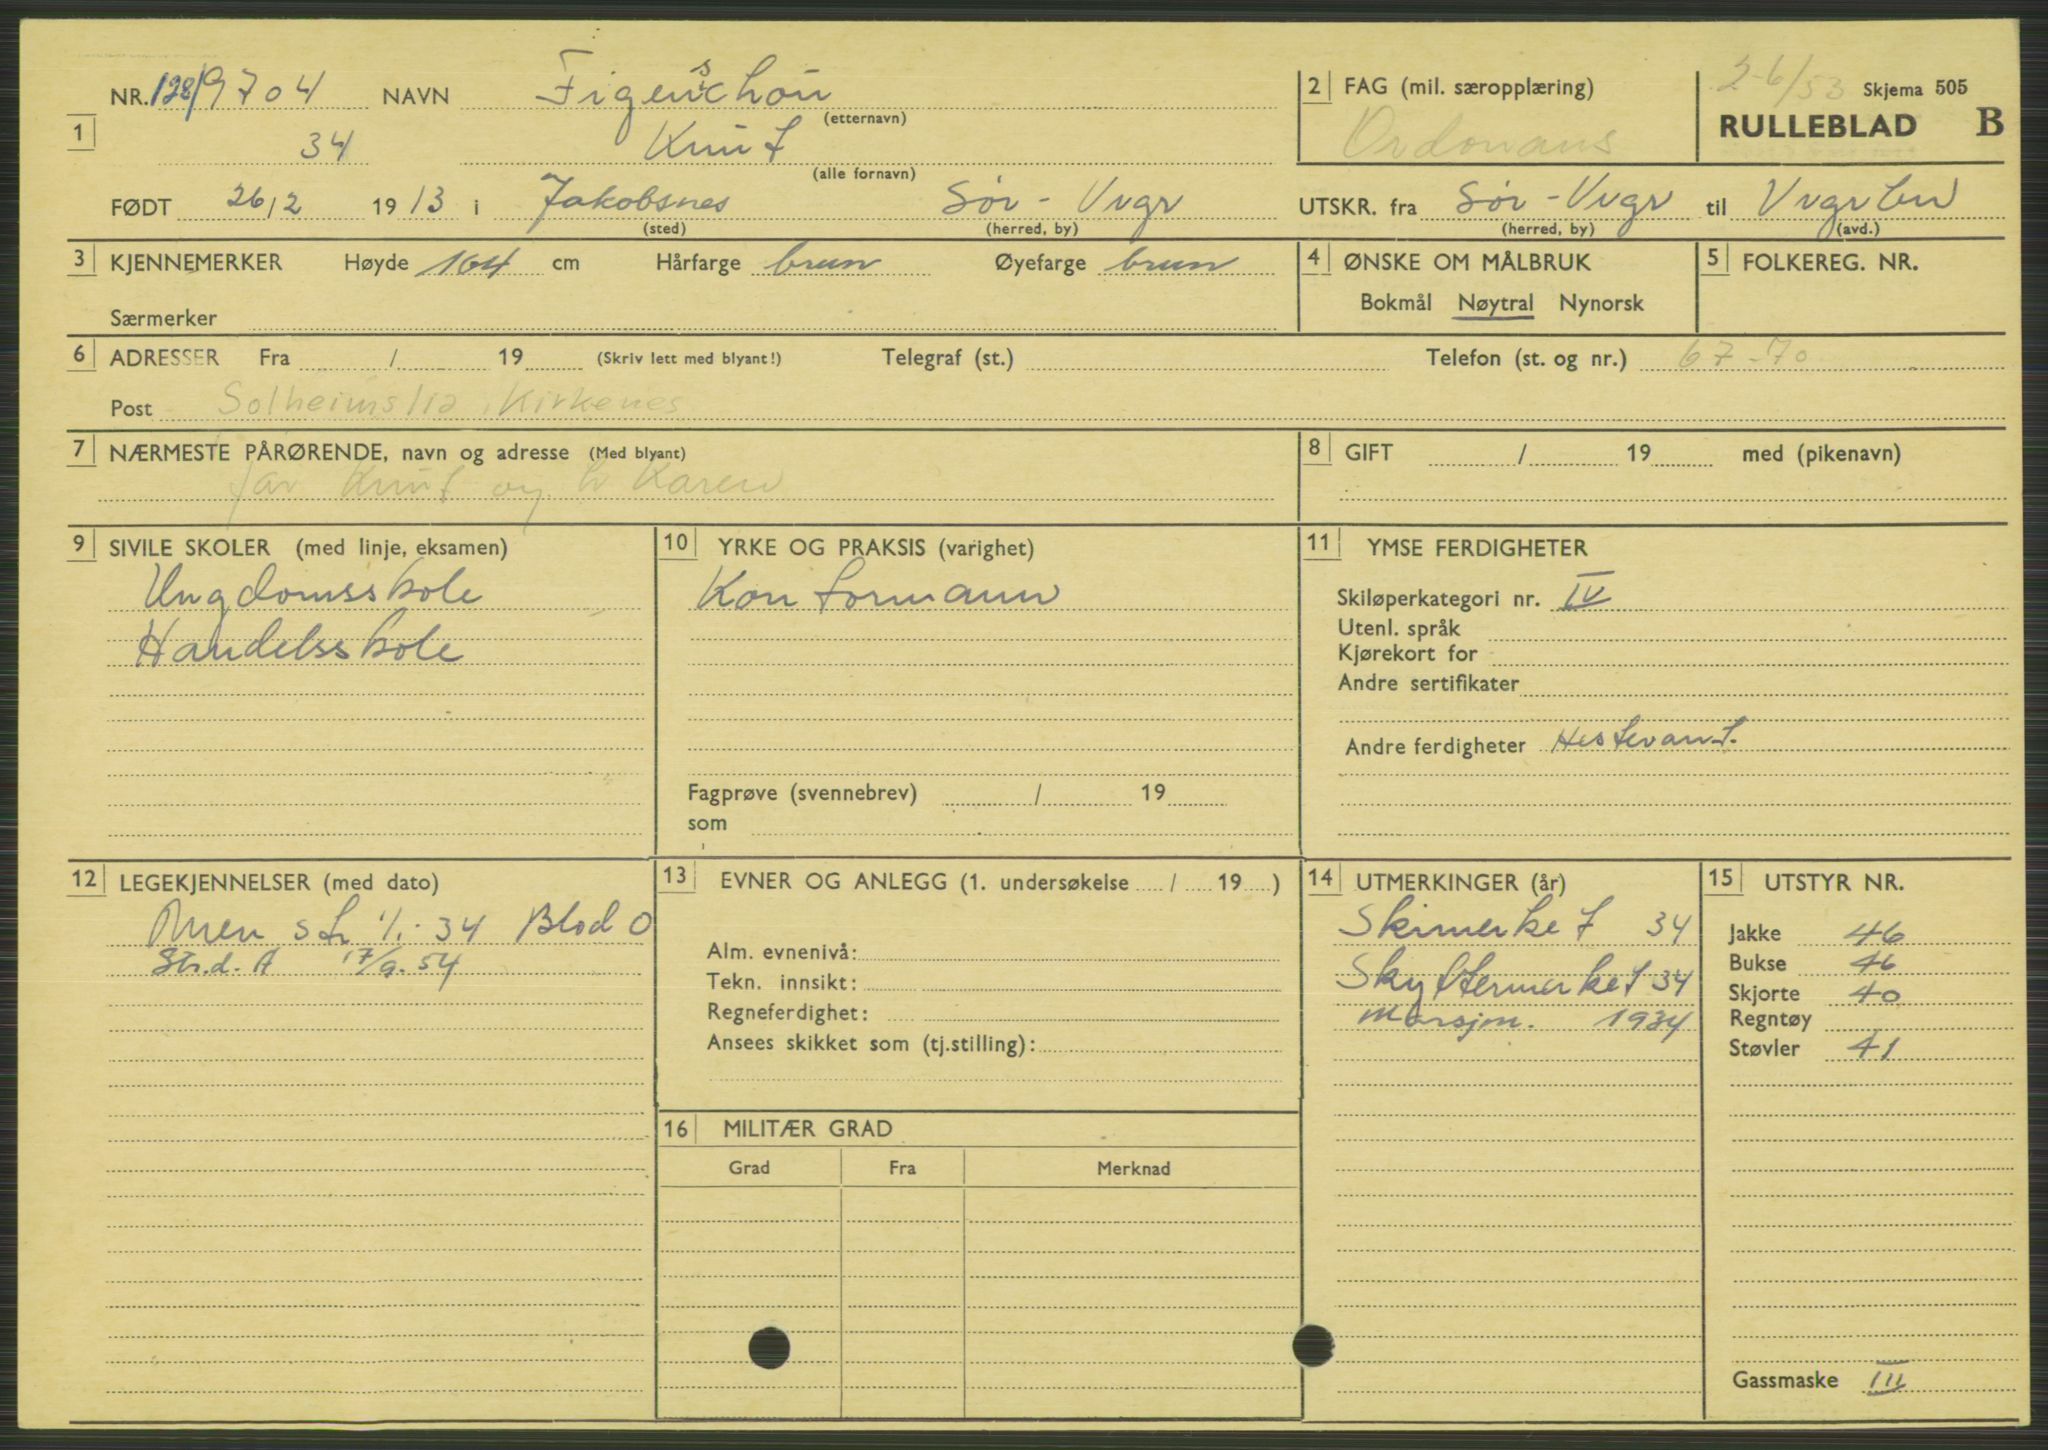 NR. 128/9704 NAVN Figenschou
(etternavn)
1 34 Knut
(alle fornavn)
FØDT 26/2 1913 i Jakobsnes Sør-Vvgr
(sted) (herred, by)
2 FAG (mil. særopplæring)
Ordonans
26/53 Skjema 505
RULLEBLAD B
UTSKR. fra Sør-Vvgr til Vvgr bn
(herred, by) (avd.)
3 KJENNEMERKER Høyde 164 cm Hårfarge brun Øyefarge brun
Særmerker
4 ØNSKE OM MÅLBRUK
Bokmål Nøytral Nynorsk
5 FOLKEREG. NR.
6 ADRESSER Fra / 19 (Skriv lett med blyant!) Telegraf (st.) Telefon (st. og nr.) 67-70
Post Solheimslia, Kirkenes
7 NÆRMESTE PÅRØRENDE, navn og adresse (Med blyant)
far Knut og h Karen
8 GIFT / 19 med (pikenavn)
9 SIVILE SKOLER (med linje, eksamen)
Ungdomsskole
Handelsskole
10 YRKE OG PRAKSIS (varighet)
Kontormann
Fagprøve (svennebrev) / 19
som
11 YMSE FERDIGHETER
Skiløperkategori nr. IV
Utenl. språk
Kjørekort for
Andre sertifikater
Andre ferdigheter Hestevant.
12 LEGEKJENNELSER (med dato)
34 Blod O
Str.d. A 17/9.54
13 EVNER OG ANLEGG (1. undersøkelse / 19 )
Alm. evnenivå:
Tekn. innsikt:
Regneferdighet:
Ansees skikket som (tj.stilling):
14 UTMERKINGER (år)
Skimerket 34
Skyttermerket 34
Marsjm. 1934
15 UTSTYR NR.
Jakke 46
Bukse 46
Skjorte 40
Regntøy
Støvler 41
Gassmaske III
16 MILITÆR GRAD
Grad Fra Merknad